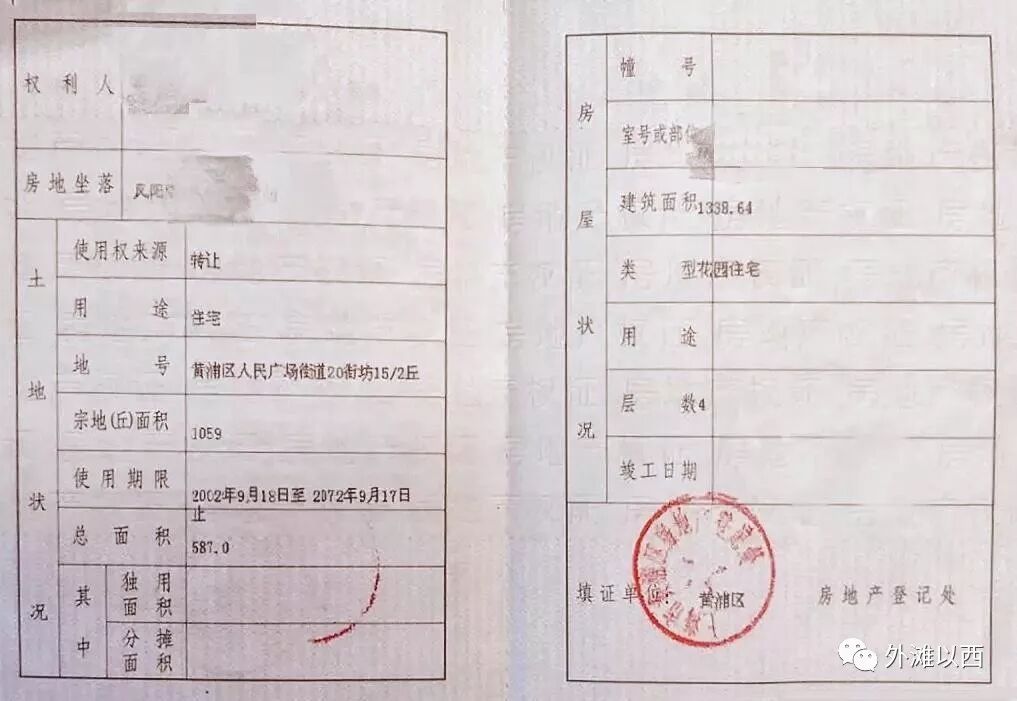 权利人
房地坐落
土地状况
使用权来源 转让
用途 住宅
地号 黄浦区人民广场街道20街坊15/2丘
宗地(丘)面积 1059
使用期限 2002年9月18日至 2072年9月17日
止
总面积 587.0
其中
独用面积
分摊面积
房屋状况
幢号
室号或部
建筑面积 1338.64
类型 花园住宅
用途
层数 4
竣工日期
填证单位: 黄浦区 房地产登记处
外滩以西